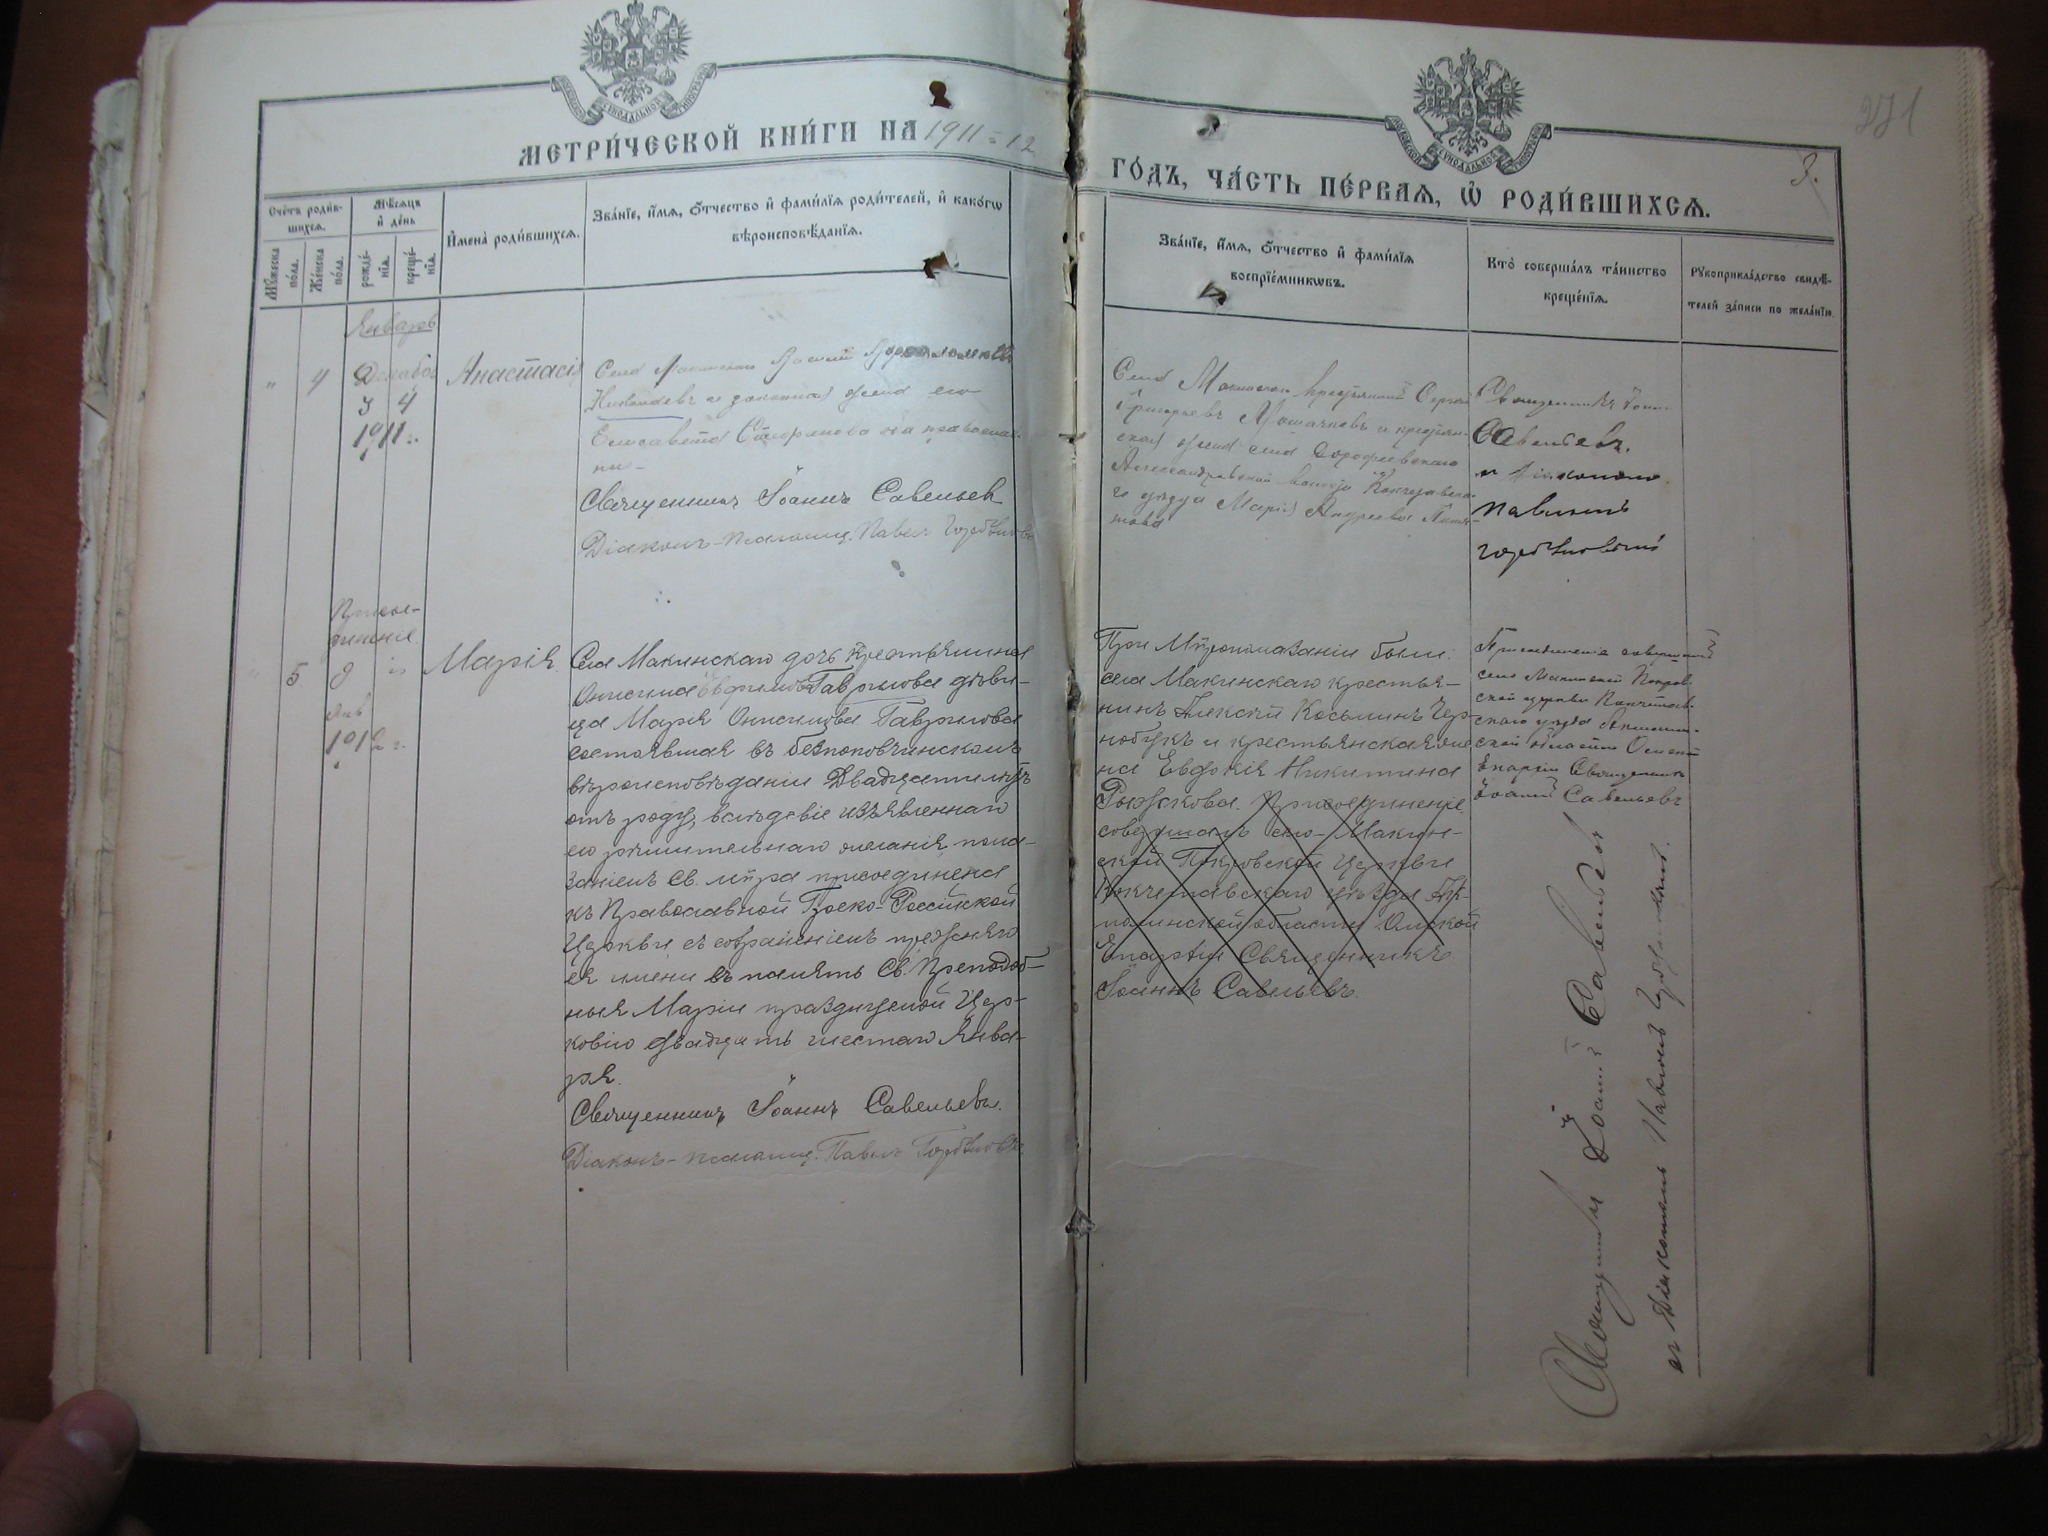 МЕТРИ́ЧЕСКОЙ КНИ́ГИ НА 1911=12
ГОДЪ, ЧА́СТЬ ПЕ́РВАѦ, Ѡ҆ РОДИ́ВШИХСѦ.
271
3.
Сче́тъ роди́в-
шихсѧ.
Мꙋ́жеска
по́ла.
Же́нска
по́ла.
Мѣ́сѧцъ
и҆ де́нь
рожде́-
нїѧ.
креще́-
нїѧ.
И҆мена̀ роди́вшихсѧ.
Зва́нїе, и҆́мѧ, ѻ҆́тчество и҆ фами́лїѧ роди́телей, и҆ како́гѡ
вѣроисповѣ́данїѧ.
Зва́нїе, и҆́мѧ, ѻ҆́тчество и҆ фами́лїѧ
воспрїе́мникѡвъ.
Кто̀ соверша́лъ та́инство
креще́нїѧ.
Рꙋкоприкла́дство свидѣ́-
телей за́писи по жела́нїю.
Январь
" 4 Декабрь
3 4
1911 г.
Анастасія
Села Макинскаго
и законная жена его
Елисавета оба православ-
ные
Священникъ Іоаннъ Савельев
Діаконъ-псаломщ. Павелъ
Села Макинскаго крестьянинъ Сергей
Григорьевъ и крестьян-
ская жена села Дорофеевскаго
Александровской волости Кокчетавска-
го уѣзда Марія Андреева
Священникъ Іоан.
Савельевъ.
и діакономъ
Павломъ
Присое-
диненіе
5 9
Янв
1912 г.
Марія.
Села Макинскаго дочь крестьянина
Онисима Гаврилова дѣви-
ца Марія Онисимова Гаврилова
состоявшая въ безпоповчинскомъ
вѣроисповѣданіи Двадцати лѣтъ
отъ роду, вслѣдсвіе изъявленнаго
ею рѣшительнаго желанія пома-
заніемъ Св. мѵра присоединена
къ Православной Греко-Россійской
Церкви съ сохраненіемъ прежняго
ея имени въ память Св. Преподоб-
ныя Маріи празднуемой Цер-
ковію двадцать шестаго Янва-
ря.
Священникъ Іоаннъ Савельевъ.
Діаконъ-псаломщ. Павелъ
При Мѵропомазаніи были:
села Макинскаго крестья-
нинъ Алексѣй Косьминъ Чер-
нобукъ и крестьянская же
на Евдокія Никитина
Рыжкова. Присоединеніе
совершалъ село-Макин-
ской Покровской Церкви
Кокчетавскаго уѣзда Ак-
молинской области Омской
Епархіи Священникъ
Іоаннъ Савельевъ.
Присоединеніе совершалъ
села Макинской Покров-
ской церкви Кокчетав-
скаго уѣзда Акмолин-
ской области Омской
Епархіи Священникъ
Іоаннъ Савельевъ
Священникъ Іоаннъ Савельевъ
и Діакономъ Павломъ